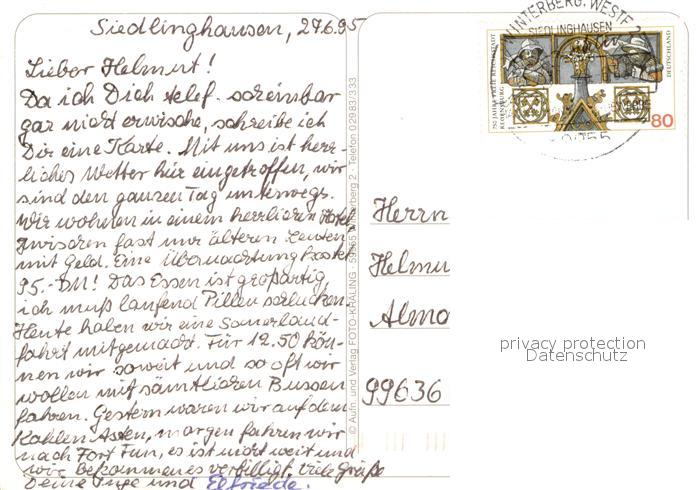 Siedlinghausen, 27.6.95
Lieber Helmut!
Da ich Dich telef. scheinbar
gar nicht erwische, schreibe ich
Dir eine Karte. Mit uns ist herr-
liches Wetter hier eingetroffen, wir
sind den ganzen Tag unterwegs.
Wir wohnen in einem herrlichen Hotel
zwischen fast nur älteren Leuten
mit Geld. Eine Übernachtung kostet
95.- DM! Das Essen ist großartig,
ich muß laufend Pillen schlucken.
Heute haben wir eine Sauerland-
fahrt mitgemacht. Für 12.50 kön-
nen wir soweit und so oft wir
wollen mit sämtlichen Bussen
fahren. Gestern waren wir auf dem
Kahlen Asten, morgen fahren wir
nach Fort Fun, es ist nicht weit und
wir bekommen es verbilligt. Viele Grüße
Deine Inge und Elfriede.
© Aufn. und Verlag FOTO-KRALING · 59955 Winterberg 2 · Telefon 02983/333
WINTERBERG, WESTF 2
SIEDLINGHAUSEN
59955
750 JAHRE FREIE REICHSSTADT
REGENSBURG
DEUTSCHLAND
80
Herrn
Helmu
Almo
99636
privacy protection
Datenschutz